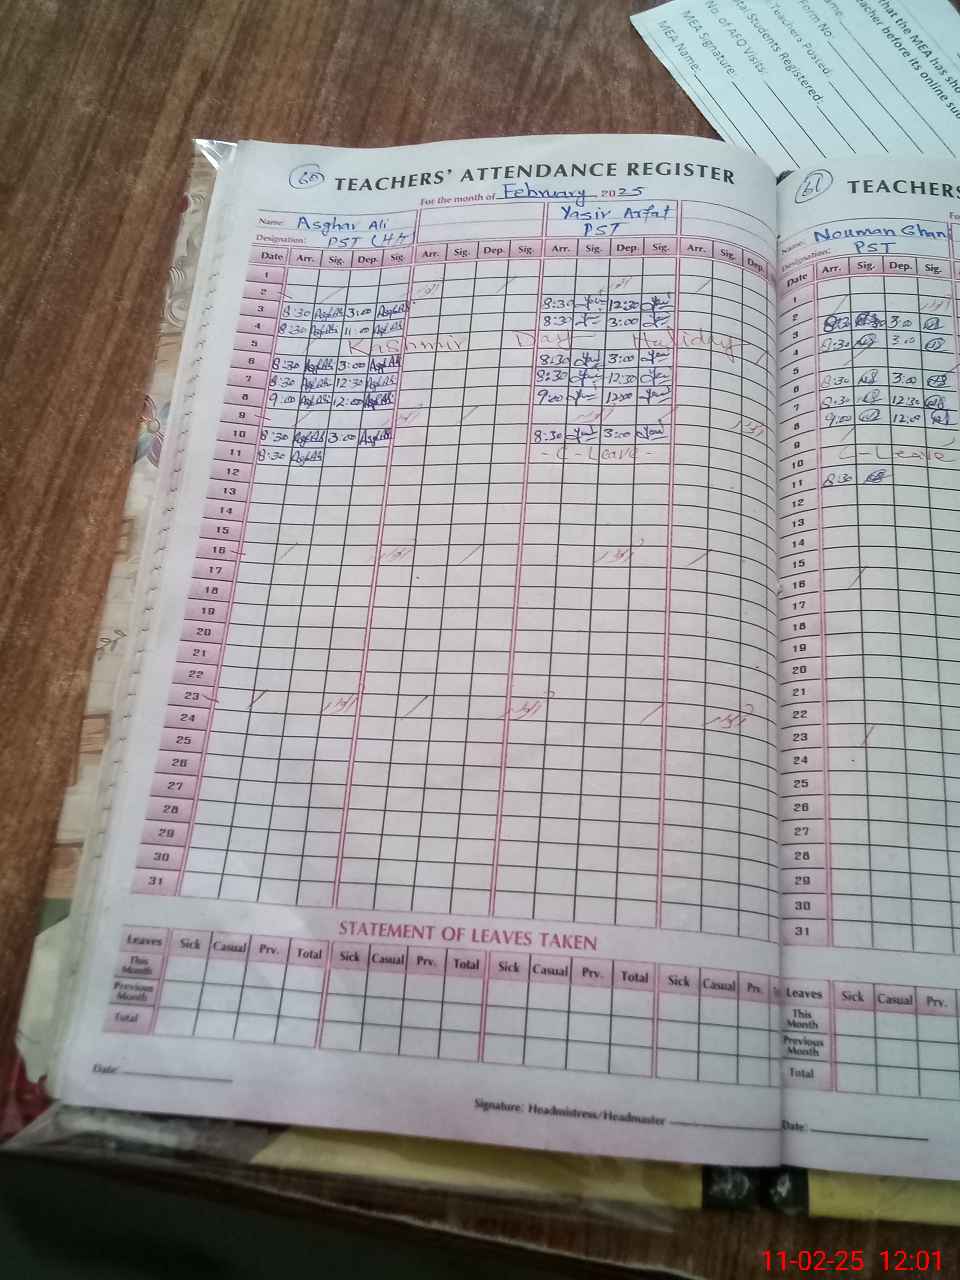 that the MEA has sho
eacher before its online sub
Form No
Teachers Posted:
Students Registered:
No. of AEO Visits:
MEA Signature:
MEA Name:
60
TEACHERS' ATTENDANCE REGISTER
For the month of February 2025
Name: Asghar Ali Yasir Arfat
Designation: PST (HT) PST
Date Arr. Sig. Dep. Sig. Arr. Sig. Dep. Sig. Arr. Sig. Dep. Sig. Arr. Sig. Dep.
1
2
3 8:30 3:00 8:30 12:30
4 8:30 11:00 8:30 3:00
5 Kashmir Day Holiday
6 8:30 3:00 8:30 3:00
7 8:30 12:30 8:30 12:30
8 9:00 12:00 9:00 12:00
9
10 8:30 3:00 8:30 3:00
11 8:30 - C - Leave -
12
13
14
15
16
17
18
19
20
21
22
23
24
25
26
27
28
29
30
31
STATEMENT OF LEAVES TAKEN
Leaves Sick Casual Prv. Total Sick Casual Prv. Total Sick Casual Prv. Total Sick Casual Prv.
This Month
Previous Month
Total
Date:
Signature: Headmistress/Headmaster
61
TEACHERS
Name: Nouman Ghan
Designation: PST
Date Arr. Sig. Dep. Sig.
1
2
3 8:30 3:00
4 8:30 3:00
5
6 8:30 3:00
7 8:30 12:30
8 9:00 12:00
9
10 C - Leave
11 8:30
12
13
14
15
16
17
18
19
20
21
22
23
24
25
26
27
28
29
30
31
Leaves Sick Casual Prv.
This Month
Previous Month
Total
Date:
11-02-25 12:01